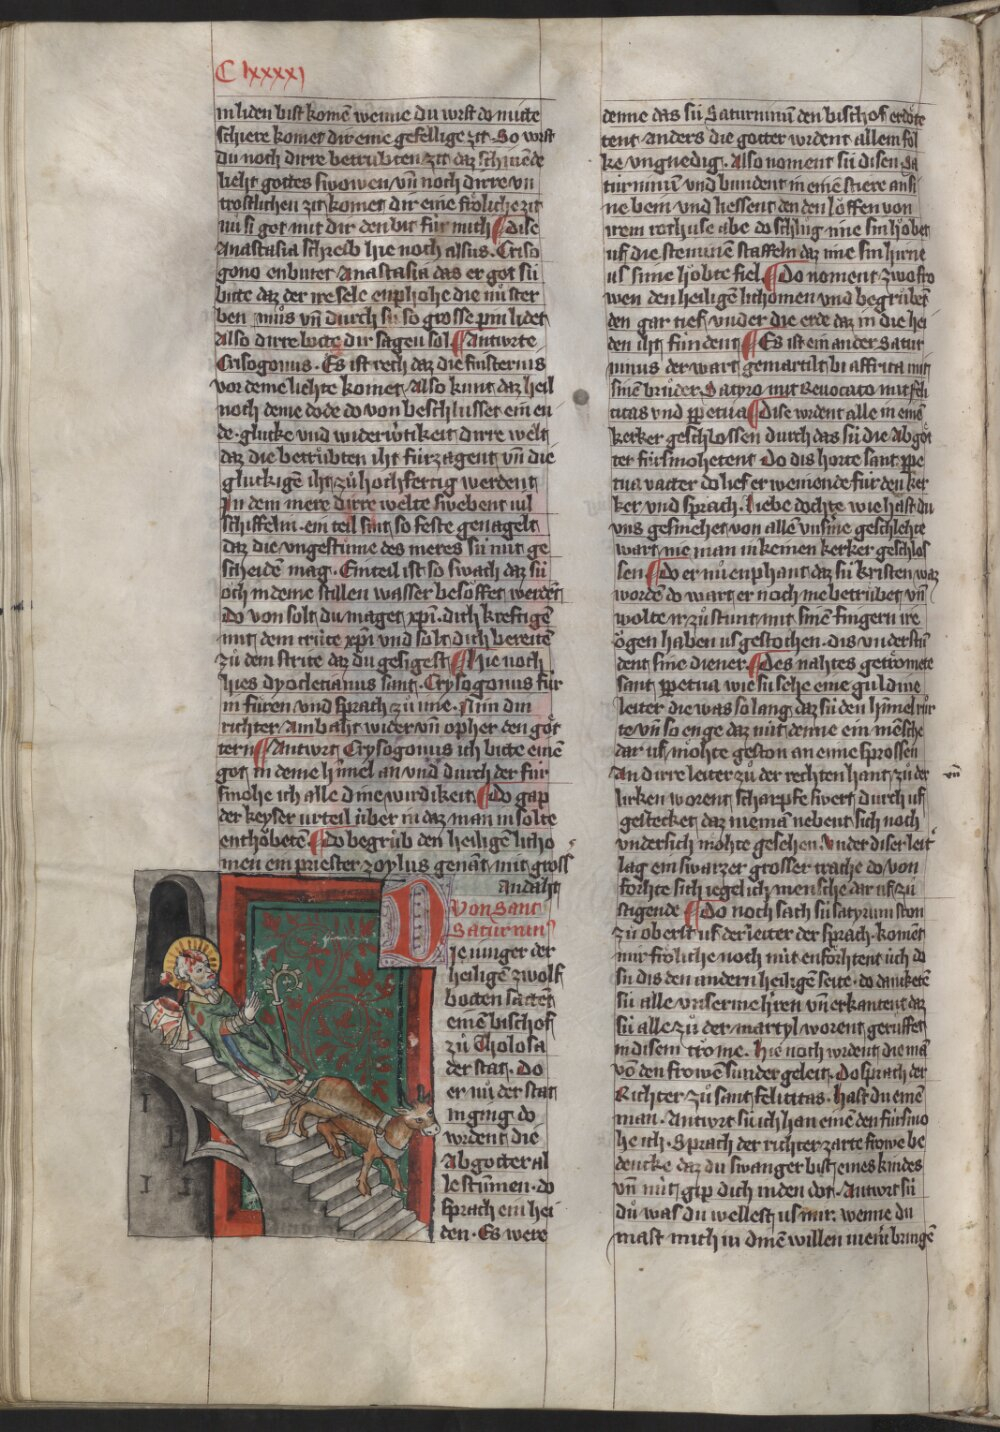 C lxxxxj
in liden bist komē wenne du wrst do mitte
schiere komet dir eine gefellige zit. So wrst
du noch dirre betrubten zit daz schinēde
lieht gottes
trostlichen zit komet dir eine frőliche zit
nü si got mit dir den bit für mich ¶ dise
Anastasia schreib hie noch alsus. Criso
gono enbutet Anastasia das er got sü
bitte daz der ire sele enphohe die
ben můs vñ durch sü so grosse pin lidet
Also dirre botte dir sagen sol ¶ Antwrte
Crisogonus. Es ist reht daz die finsternis
vor deme liehte komet Also kunt daz heil
noch deme dode do von beschlusset ein en
de. glucke vnd widerwᵉtikeit dirre welt
daz die betrůbten iht fürzagent vñ die
gluckigē iht zů hochfertig werdent
In dem mere dirre welte swebent vil
schiffelin. ein teil sint so feste genagelt
daz die vngestüme des meres sü nüt ge
scheidē mag. Ein teil ist so swach daz sü
och in deme stillen wasser besőffet werdēt
Do von solt du maget xp̄i. dich kreftigē
mit dem crüte xp̄i vnd solt dich bereitē
zů dem strite daz du gesigest ¶ Hie noch
hies dyocletianus sant. Crysogonus für
in fůren vnd sprach zů ime. Nim din
richter Ambaht wider vñ opher den gőt
tern ¶ Antwrt Crysogonus ich bitte einē
got in deme himel an vnd durch der für
smohe ich alle dine wirdikeit ¶ Do gap
der keyser vrteil über in daz man in solte
enthőbetē ¶ Do begrůb den heiligē licho
men ein priester zoylus genāt mit gross
andaht
Von Sant
Saturnin
Die iunger der
heiligē zwolf
botten sattēt
einē bischof
zů Tholosa
der stat. Do
er nů der stat
in ging do
wrdent die
Abgotter al
le stummen. do
sprach ein hei
den. Es were
denne das sü Saturninū den bischof ertőt
tent anders die gőtter wrdent allem fol
ke vngnedig. Also noment sü disen Sa
turninū vnd bundent in einē stiere an si
ne bein vnd liessent den den lőffen von
irem rothuse abe do schlůg ime sin hőbet
uf die steininē staffeln daz ime sin hirne
us sime hőbte fiel ¶ Do noment zwo fro
wen den heiligē lichomen vnd begrůbēt
den gar tief vnder die erde daz in die hei
den iht fundent ¶ Es ist ein ander Satur
ninus der wart gemartilt bi affrica mit
sinē brůder Satyro mit Reuocato mit feli
citas vnd p̱petua ¶ Dise wrdent alle in einē
kerker geschlossen durch das sü die abgőt
ter fürsmohetent Do dis horte sant p̱pe
tua vatter do lief er weinende für den ker
ker vnd sprach. Liebe dochter wie hast du
vns gesmehet von allē vnsīme geschlehte
wart nie man in keinen kerker geschlos
sen ¶ Do er nů enphant daz sü kristen waz
wordē do wart er noch me betrůbet vñ
wolte ir zůstunt mit sinē fingern ire
őgen haben us gestochen. dis vnderstůn
dent sine diener. ¶ Des nahtes getrőmete
sant p̱petua wie sü sehe eine guldine
leiter die was so lang daz sü den himel růr
te vñ so enge daz nüt denne ein mēsche
dar uf möhte geston an eine sprossen
An dirre leiter zů der rechten hant zů der vñ
lirken worent scharpfe swert durch uf
gestecket daz niemā nebent sich noch
vndersich mőhte gesehen. Vnder diser leit
lag ein swarzer grosser trache do von
forhte sich iegelich mensche dar uf zů
stigende ¶ Do noch sach sü satyrum ston
zů oberst uf der leiter der sprach. komēt
mir frőliche noch nüt enfőrhtent üch do
sü dis den andern heiligē seite. do danketē
sü alle vnserme hᵉren vñ erkantent daz
sü alle zů der martyl worent gerůffet
in disem trőme. Hie noch wrdent die mā
vō den frowē sunder geleit. Do sprach der
Richter zů sant felicitas. Hast du einē
man. Antwrt sü ich han einē den fürsmo
he ich. Sprach der richter zarte frowe be
dencke daz du swanger bist eines kindes
vñ nüt gip dich in den dot. Antwrt sü
dů was du wellest us mir. wenne du
maht mich in dinē willen niem̄ bringē